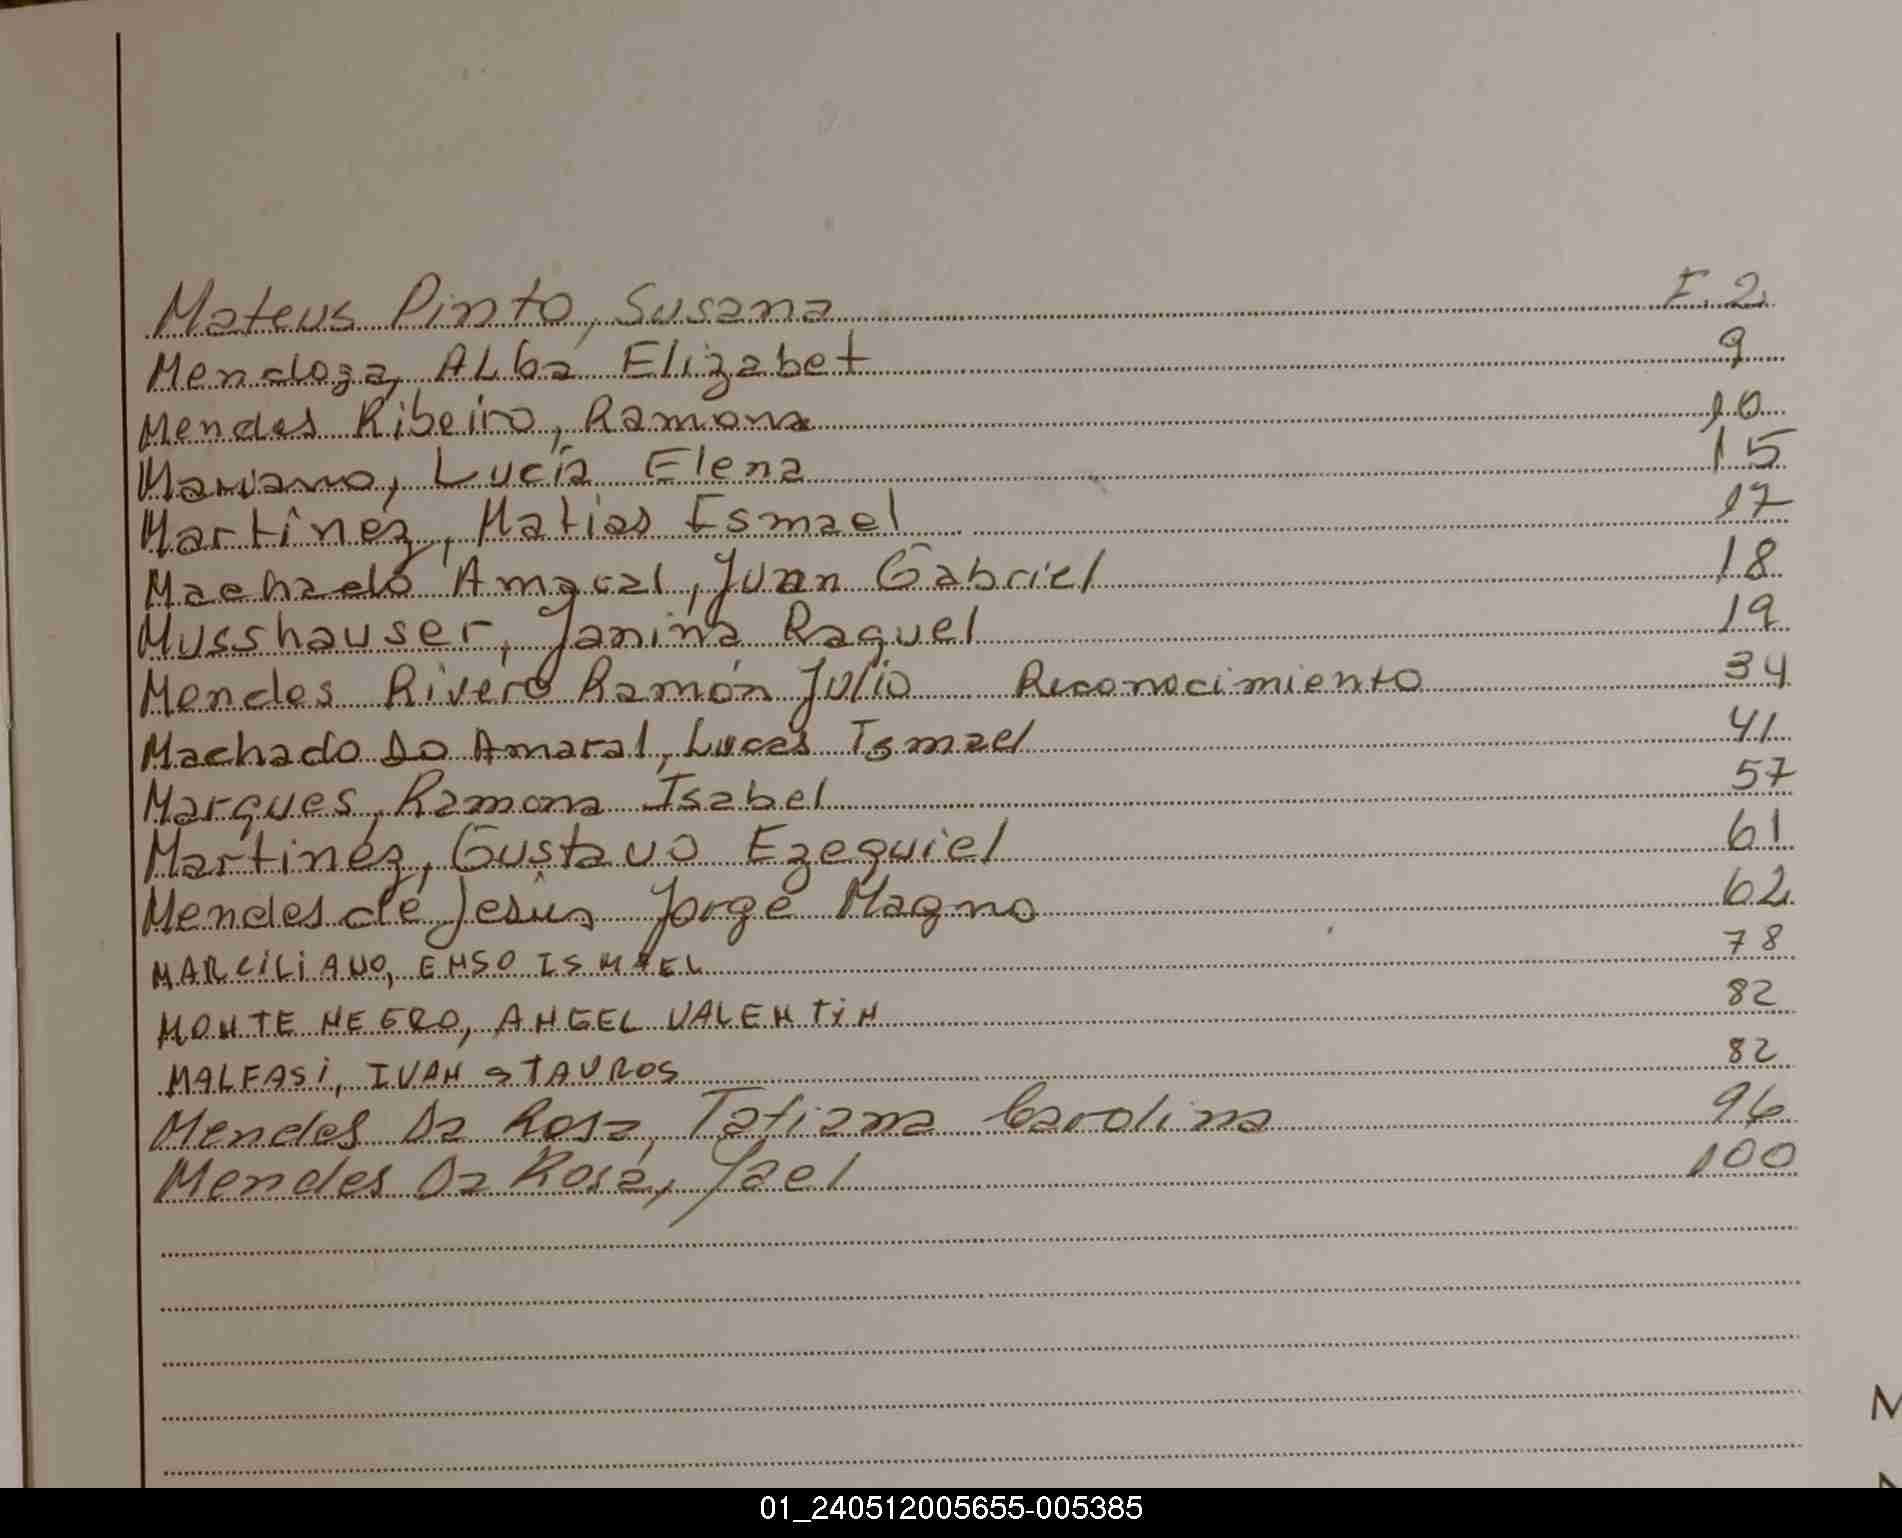 Mateus Pinto, Susana F. 2.
Mendoza, ALba Elizabet 9
Mendes Ribeiro, Ramona 10
Mariano, Lucía Elena 15
Martínez, Matias Ismael 17
Machado Amaral, Juan Gabriel 18
Musshauser, Janina Raquel 19
Mendes Rivero Ramón Julio Reconocimiento 34
Machado Do Amaral, Lucas Ismael 41
Marques, Ramona Isabel 57
Martinez, Gustavo Ezequiel 61
Mendes de Jesús Jorge Magno 62
MARCILIANO, ENSO ISMAEL 78
MONTE NEGRO, ANGEL VALENTIN 82
MALFASI, IVAN STAVROS 82
Mendes Da Rosa, Tatiana Carolina 96
Mendes Da Rosa, Yael 100
M
01_240512005655-005385